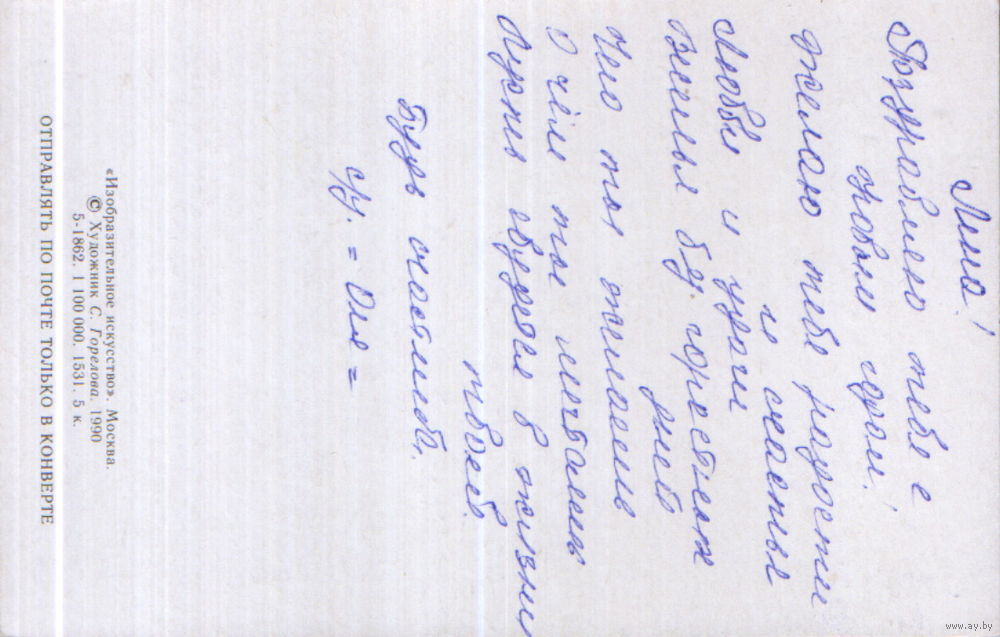 Поздравляю тебя с
новым годом!
Желаю тебе радости
и счастья
Любви и удачи
Веселья без горестных
дней
Что ты желаешь
О чём ты мечтаешь
Пусть сбудется в жизни
твоей.
Будь счастлива.
с/у. = Оля =
«Изобразительное искусство». Москва.
© Художник С. Горелова. 1990
5-1862. 1 100 000. 1531. 5 к.
ОТПРАВЛЯТЬ ПО ПОЧТЕ ТОЛЬКО В КОНВЕРТЕ
www.ay.by